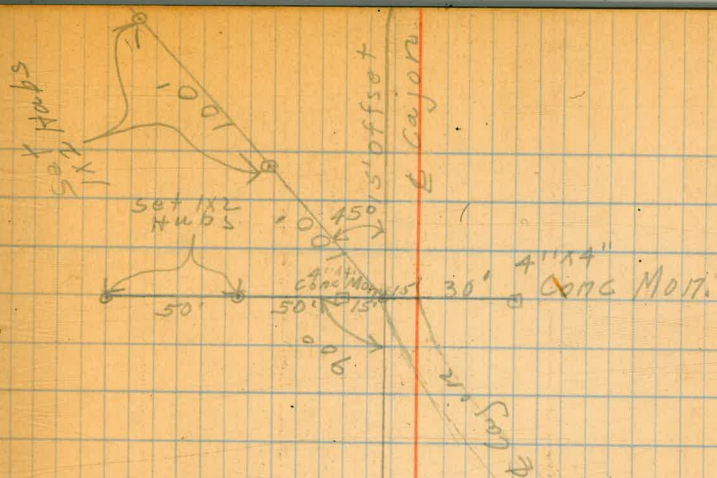 Set Hubs
1x2
100'
15' Offset
℄ Cajon
Set 1x2
Hubs
100'
45°
4"x4"
Conc Mon.
50'
50'
15'
15'
30'
4"x4"
Conc Mon.
90°
℄ Cajon